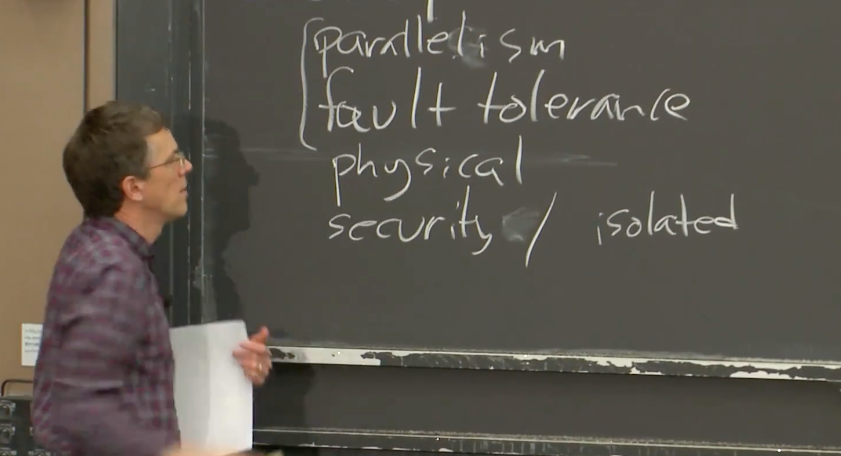 parallelism
fault tolerance
physical
security / isolated